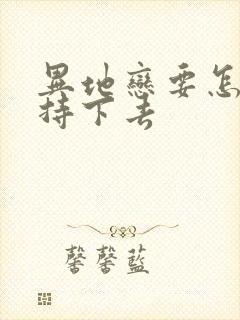 異地戀要怎
持下去
馨馨藍